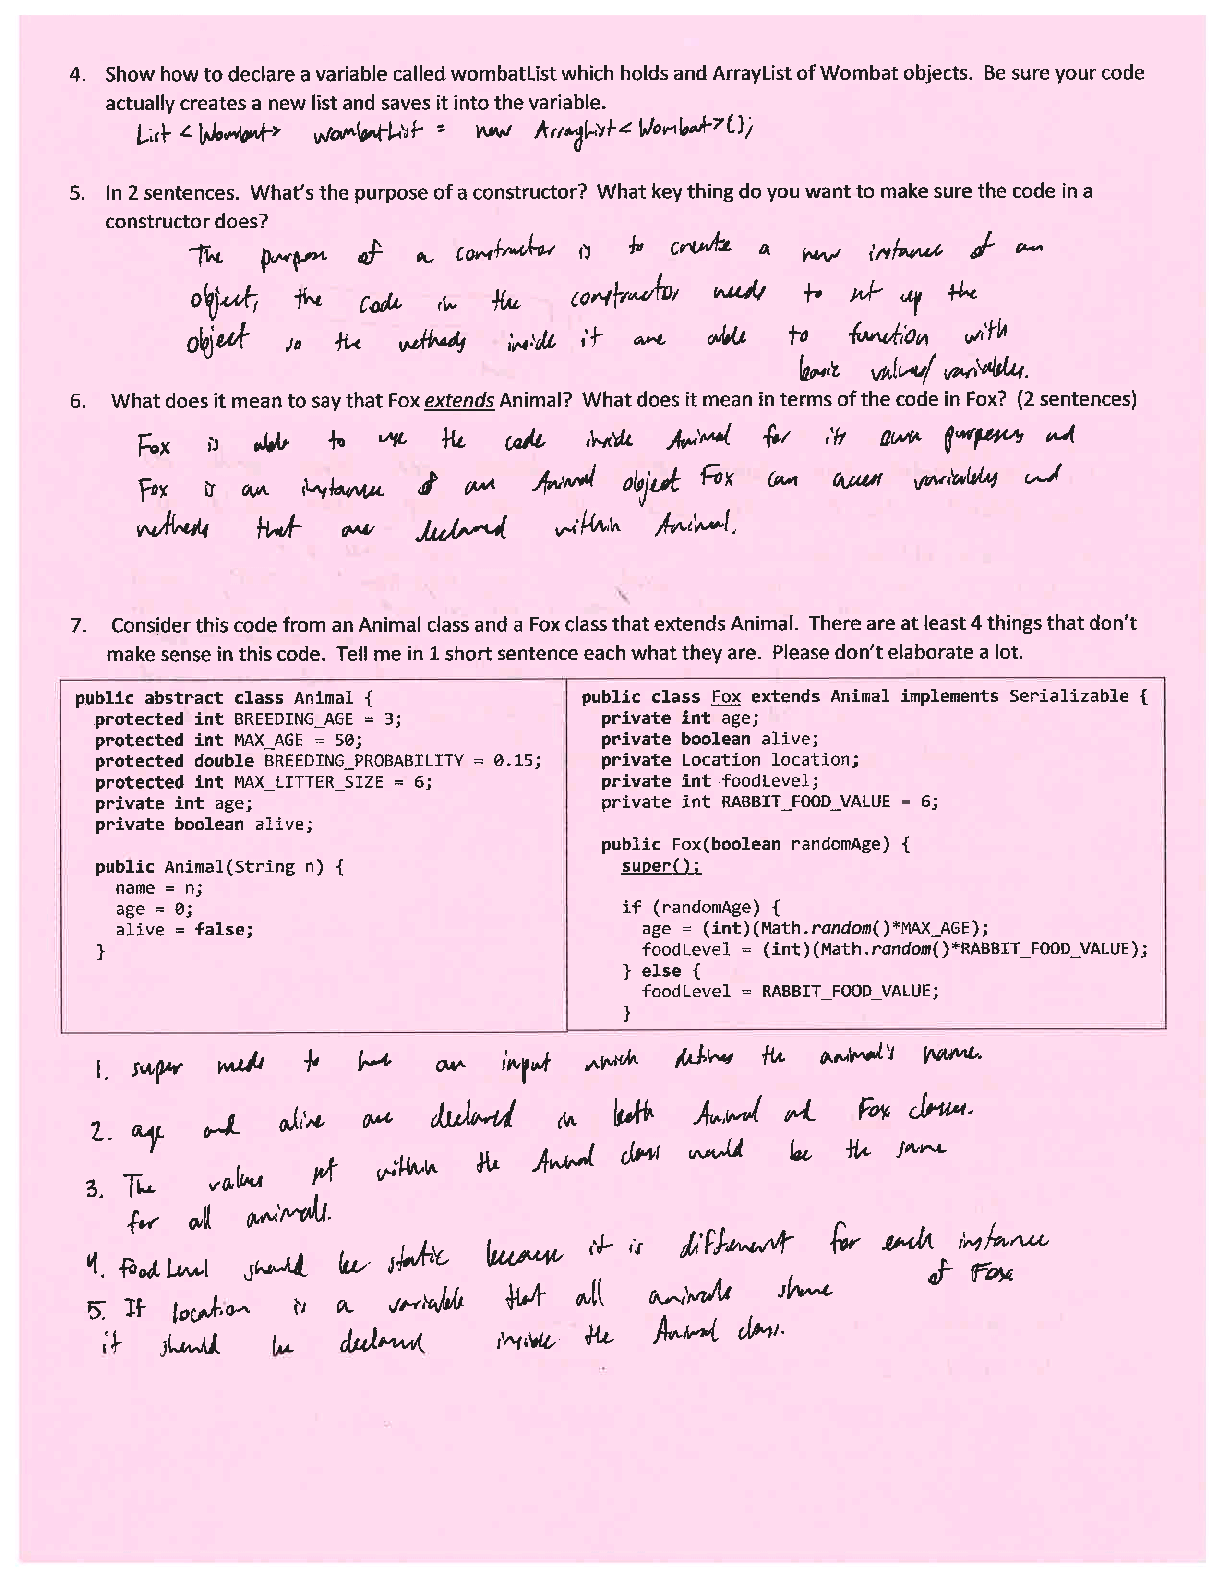 4. Show how to declare a variable called wombatList which holds and ArrayList of Wombat objects. Be sure your code
actually creates a new list and saves it into the variable.
List <Wombat> wombatList = new ArrayList<Wombat>();
5. In 2 sentences. What's the purpose of a constructor? What key thing do you want to make sure the code in a
constructor does?
The purpose of a constructor is to create a new instance of an
object, the code in the constructor needs to set up the
object so the methods inside it are able to function with
basic values/variables.
6. What does it mean to say that Fox extends Animal? What does it mean in terms of the code in Fox? (2 sentences)
Fox is able to use the code inside Animal for its own purposes and
Fox is an instance of an Animal object Fox can access variables and
methods that are declared within Animal.
7. Consider this code from an Animal class and a Fox class that extends Animal. There are at least 4 things that don't
make sense in this code. Tell me in 1 short sentence each what they are. Please don't elaborate a lot.
public abstract class Animal {
protected int BREEDING_AGE = 3;
protected int MAX_AGE = 50;
protected double BREEDING_PROBABILITY = 0.15;
protected int MAX_LITTER_SIZE = 6;
private int age;
private boolean alive;
public Animal(String n) {
name = n;
age = 0;
alive = false;
}
public class Fox extends Animal implements Serializable {
private int age;
private boolean alive;
private Location location;
private int foodLevel;
private int RABBIT_FOOD_VALUE = 6;
public Fox(boolean randomAge) {
super();
if (randomAge) {
age = (int)(Math.random()*MAX_AGE);
foodLevel = (int)(Math.random()*RABBIT_FOOD_VALUE);
} else {
foodLevel = RABBIT_FOOD_VALUE;
}
1. super needs to have an input which defines the animal's name.
2. age and alive are declared in both Animal and Fox classes.
3. The values set within the Animal class would be the same
for all animals.
4. Food Level should be static because it is different for each instance
of Fox
5. If location is a variable that all animals share
it should be declared inside the Animal class.